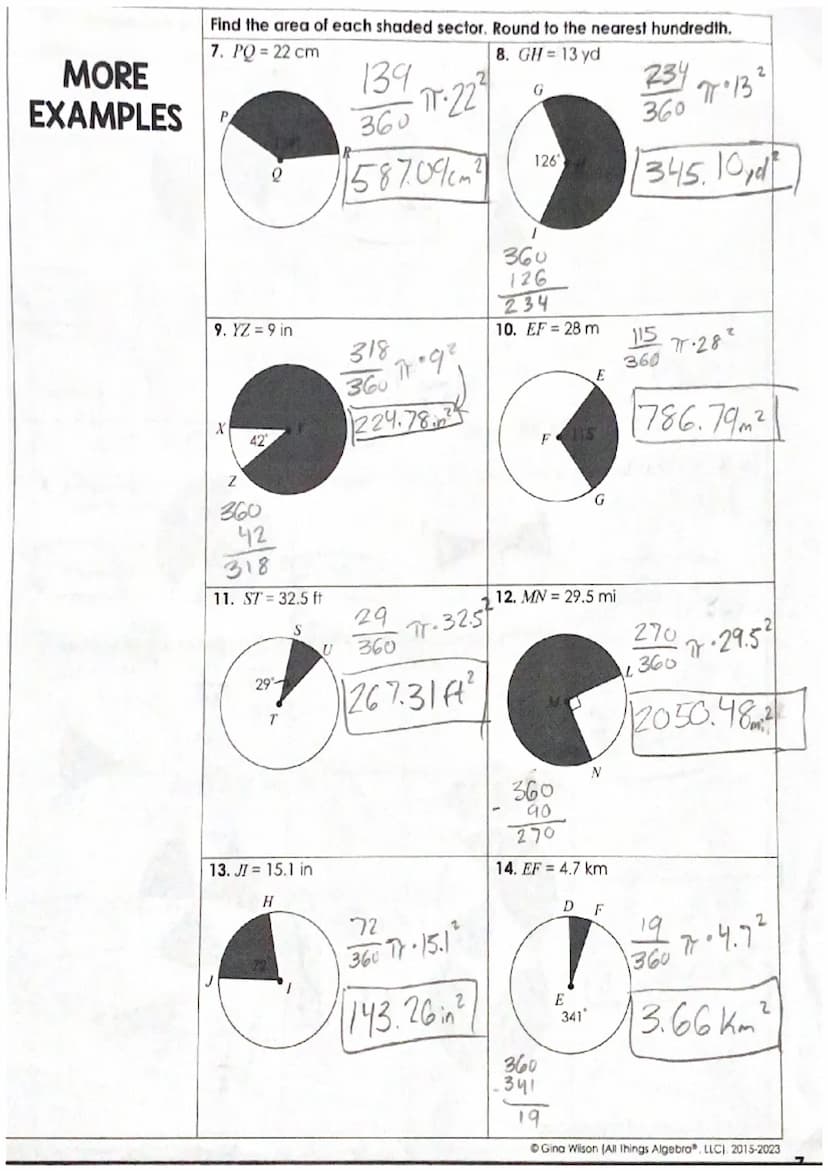 MORE
EXAMPLES
Find the area of each shaded sector. Round to the nearest hundredth.
7. PQ = 22 cm
139
360
π·22²
587.09cm²
P
R
Q
8. GH = 13 yd
234
360
π·13²
345.10yd²
G
126°
I
360
126
234
9. YZ = 9 in
318
360
π·9²
224.78in²
X
Y
42°
Z
360
42
318
10. EF = 28 m
115
360
π·28²
786.79m²
E
F
115
G
11. ST = 32.5 ft
29
360
π·32.5²
267.31ft²
S
U
29°
T
12. MN = 29.5 mi
270
360
π·29.5²
2050.48mi²
L
M
N
- 360
90
270
13. JI = 15.1 in
72
360
π·15.1²
143.26in²
H
72
J
I
14. EF = 4.7 km
19
360
π·4.7²
3.66 Km²
D F
E
341°
360
-341
19
© Gina Wilson (All Things Algebra®, LLC), 2015-2023
7